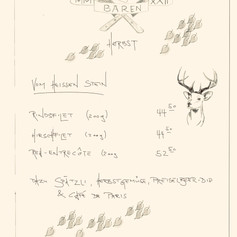 XXII
BÄREN
HERBST
VOM HEISSEN STEIN
RINDSFILET (200g) 44 50
HIRSCHFILET (200g) 44 50
REH-ENTRECÔTE 200g 52 50
DAZU SPÄTZLI, HERBSTGEMÜSE, PREISELBEER-
& CAFÉ DE PARIS